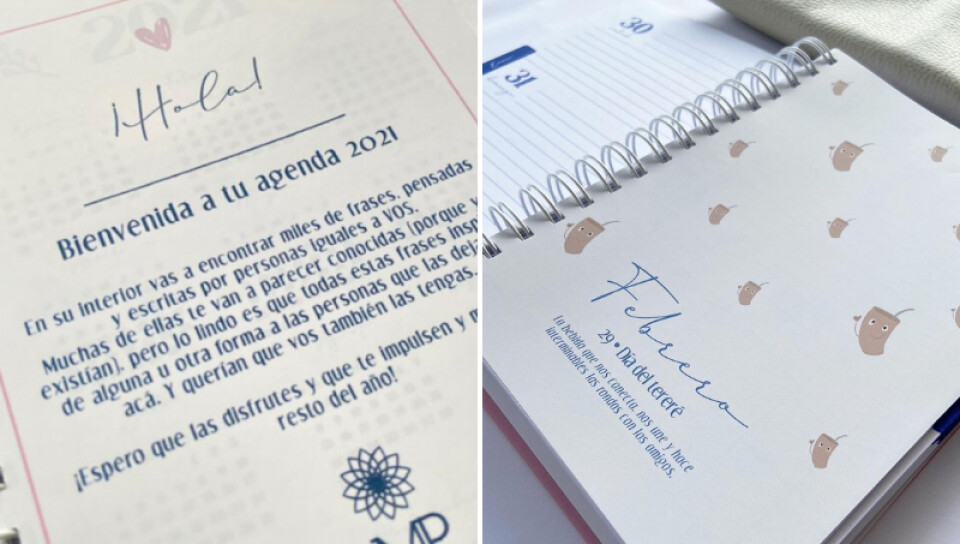 2021
¡Hola!
Bienvenida a tu agenda 2021
En su interior vas a encontrar miles de frases, pensadas
y escritas por personas iguales a vos.
Muchas de ellas te van a parecer conocidas (porque y
existían), pero lo lindo es que todas estas frases insp
de alguna u otra forma a las personas que las deja
acá. Y querían que vos también las tengas.
¡Espero que las disfrutes y que te impulsen y m
resto del año!
MP
30
31
Febrero
29 • Día del tereré
La bebida que nos conecta, nos une y hace
interminables las rondas con los amigos.